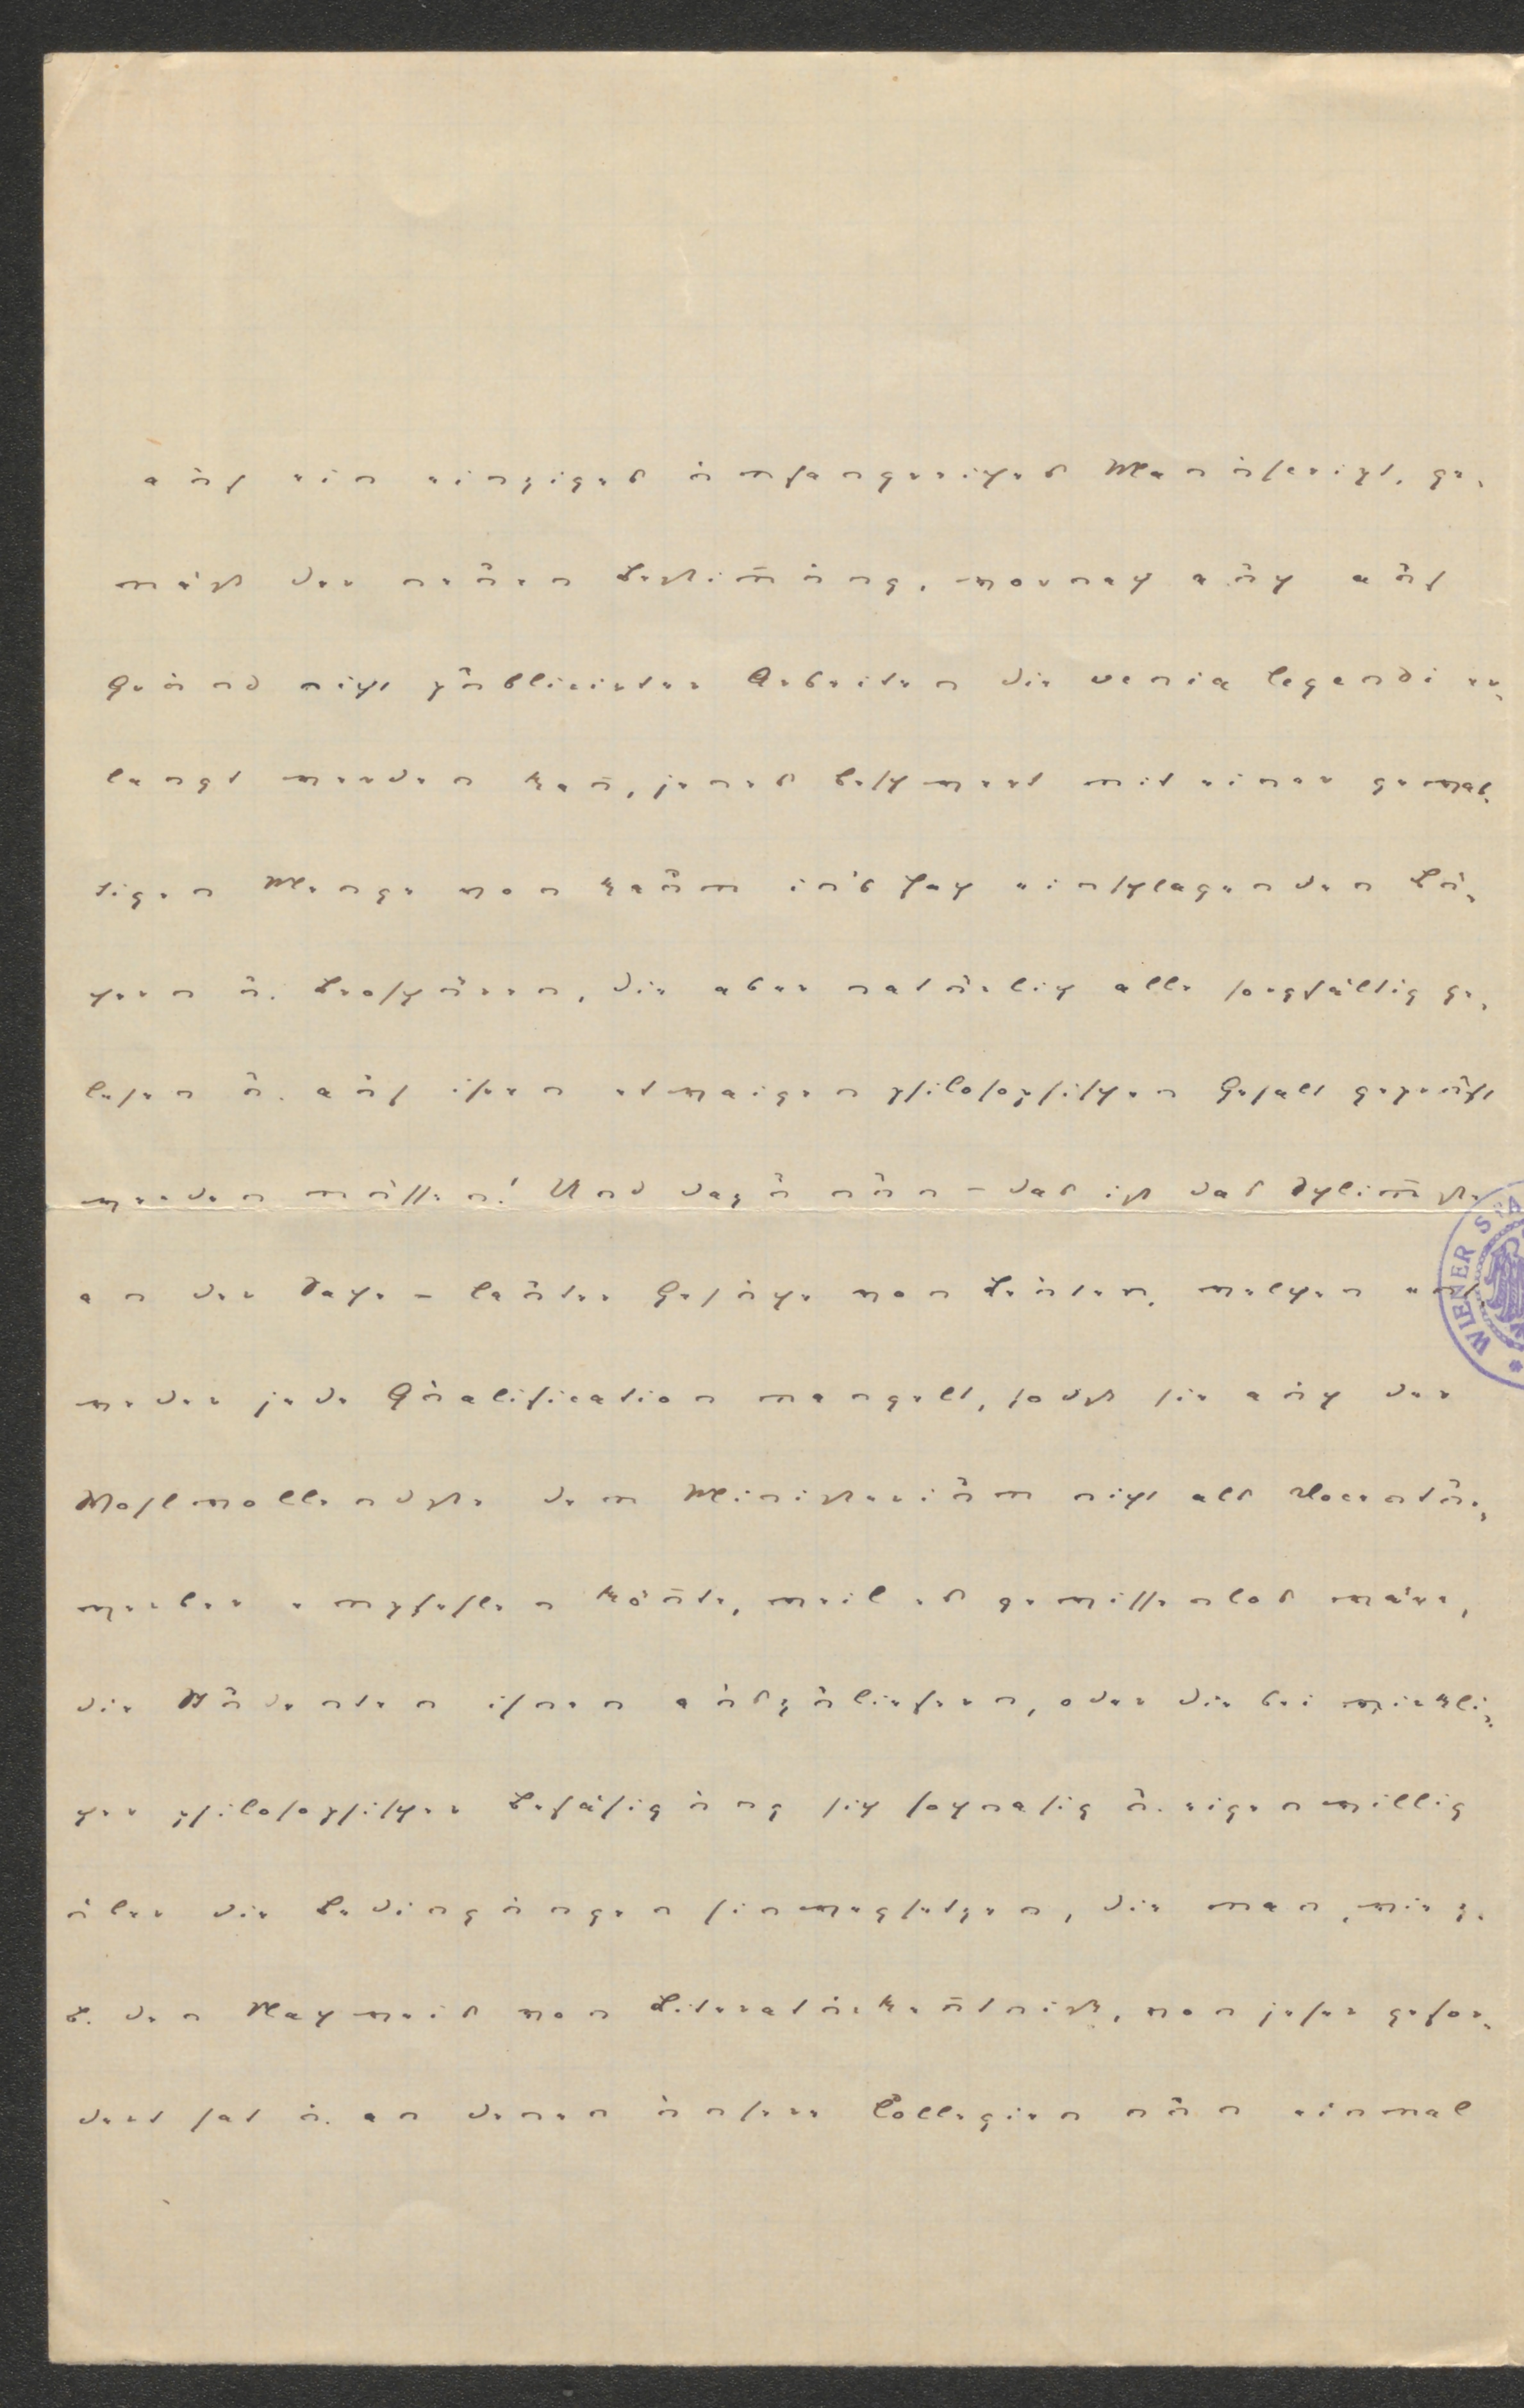 auf ein einziges umfangreiches Manuscript, ge-
mäß der neuen Bestim̄ung, wornach auch auf
Grund nicht publicirter Arbeiten die venia legendi er-
langt werden kan̄, jenes beschwert mit einer gewal-
tigen Menge von kaum in's Fach einschlagenden Bü-
chern u. Broschüren, die aber natürlich alle sorgfältig ge-
lesen u. auf ihren etwaigen philosophischen Gehalt geprüft
werden müssen! Und dazu nun – das ist das Schlim̄ste
an der Sache – lauter Gesuche von Leuten, welchen ent-
weder jede Qualification mangelt, sodaß sie auch der
Wohlwollendste dem Ministerium nicht als Docentur-
werber empfehlen kön̄te, weil es gewissenlos wäre,
die Studenten ihnen auszuliefern, oder die bei wirkli-
cher philosophischer Befähigung sich hochnasig u. eigenwillig
über die Bedingungen hinwegsetzen, die man, wie z.
B. den Nachweis von Literaturken̄tniß, von jeher gefor-
dert hat u. an denen unsere Collegien nun einmal
WIENER STA